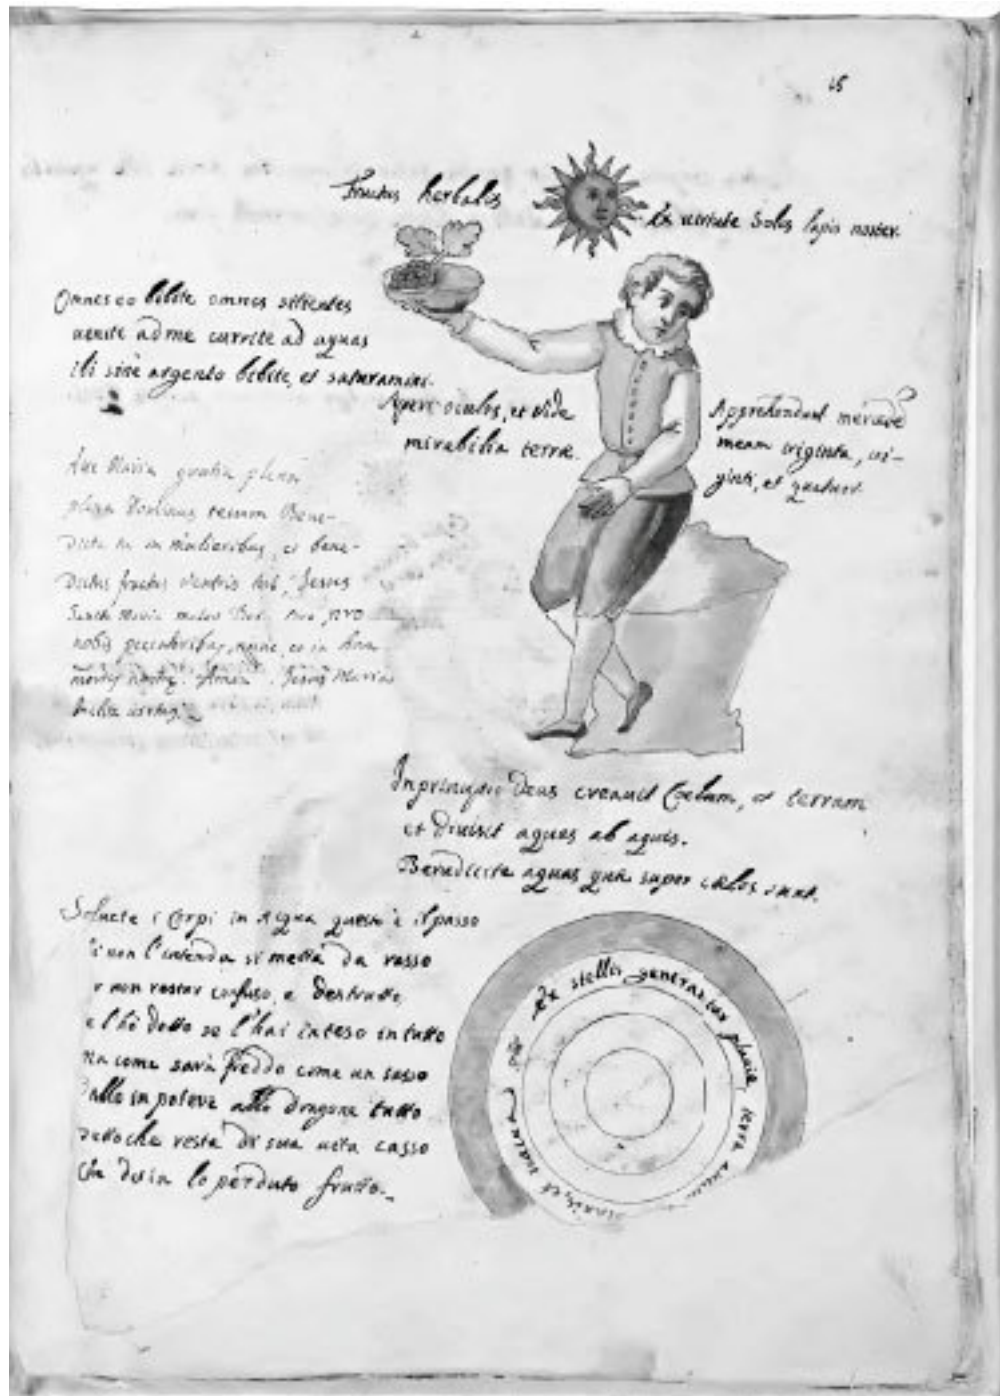 Fructus herbalis
Ex uirtute Solis lapis noster.
Omnes eo bibite omnes sitientes
uenite ad me currite ad aquas
ibi sine argento bibite, et saturamini.
Aperi oculos, et vide
mirabilia terræ.
Apprehendent
meam triginta, ui-
ginti, et quatuor
Aue Maria gratia plena
Dominus tecum Bene-
dicta tu in mulieribus, et bene-
dictus fructus ventris tui, Jesus
Sancta Maria mater Dei, pro
nobis peccatoribus, nunc, et in hora
mortis nostrę. Amen. Jesus Maria
In principio Deus creauit Cœlum, et terram
et diuisit aquas ab aquis.
Benedicite aquas quæ super cælos sunt.
Soluete i Corpi in Acqua questo è il passo
non l'intenda si metta da
non restar confuso, e destrutto,
l'hò detto se l'hai inteso in tutto
come sarà freddo come un sasso
in potere allo dragone tutto
che resta di sua uita casso
lo perduto frutto.
Ex stellis generantur pluuiæ, terra